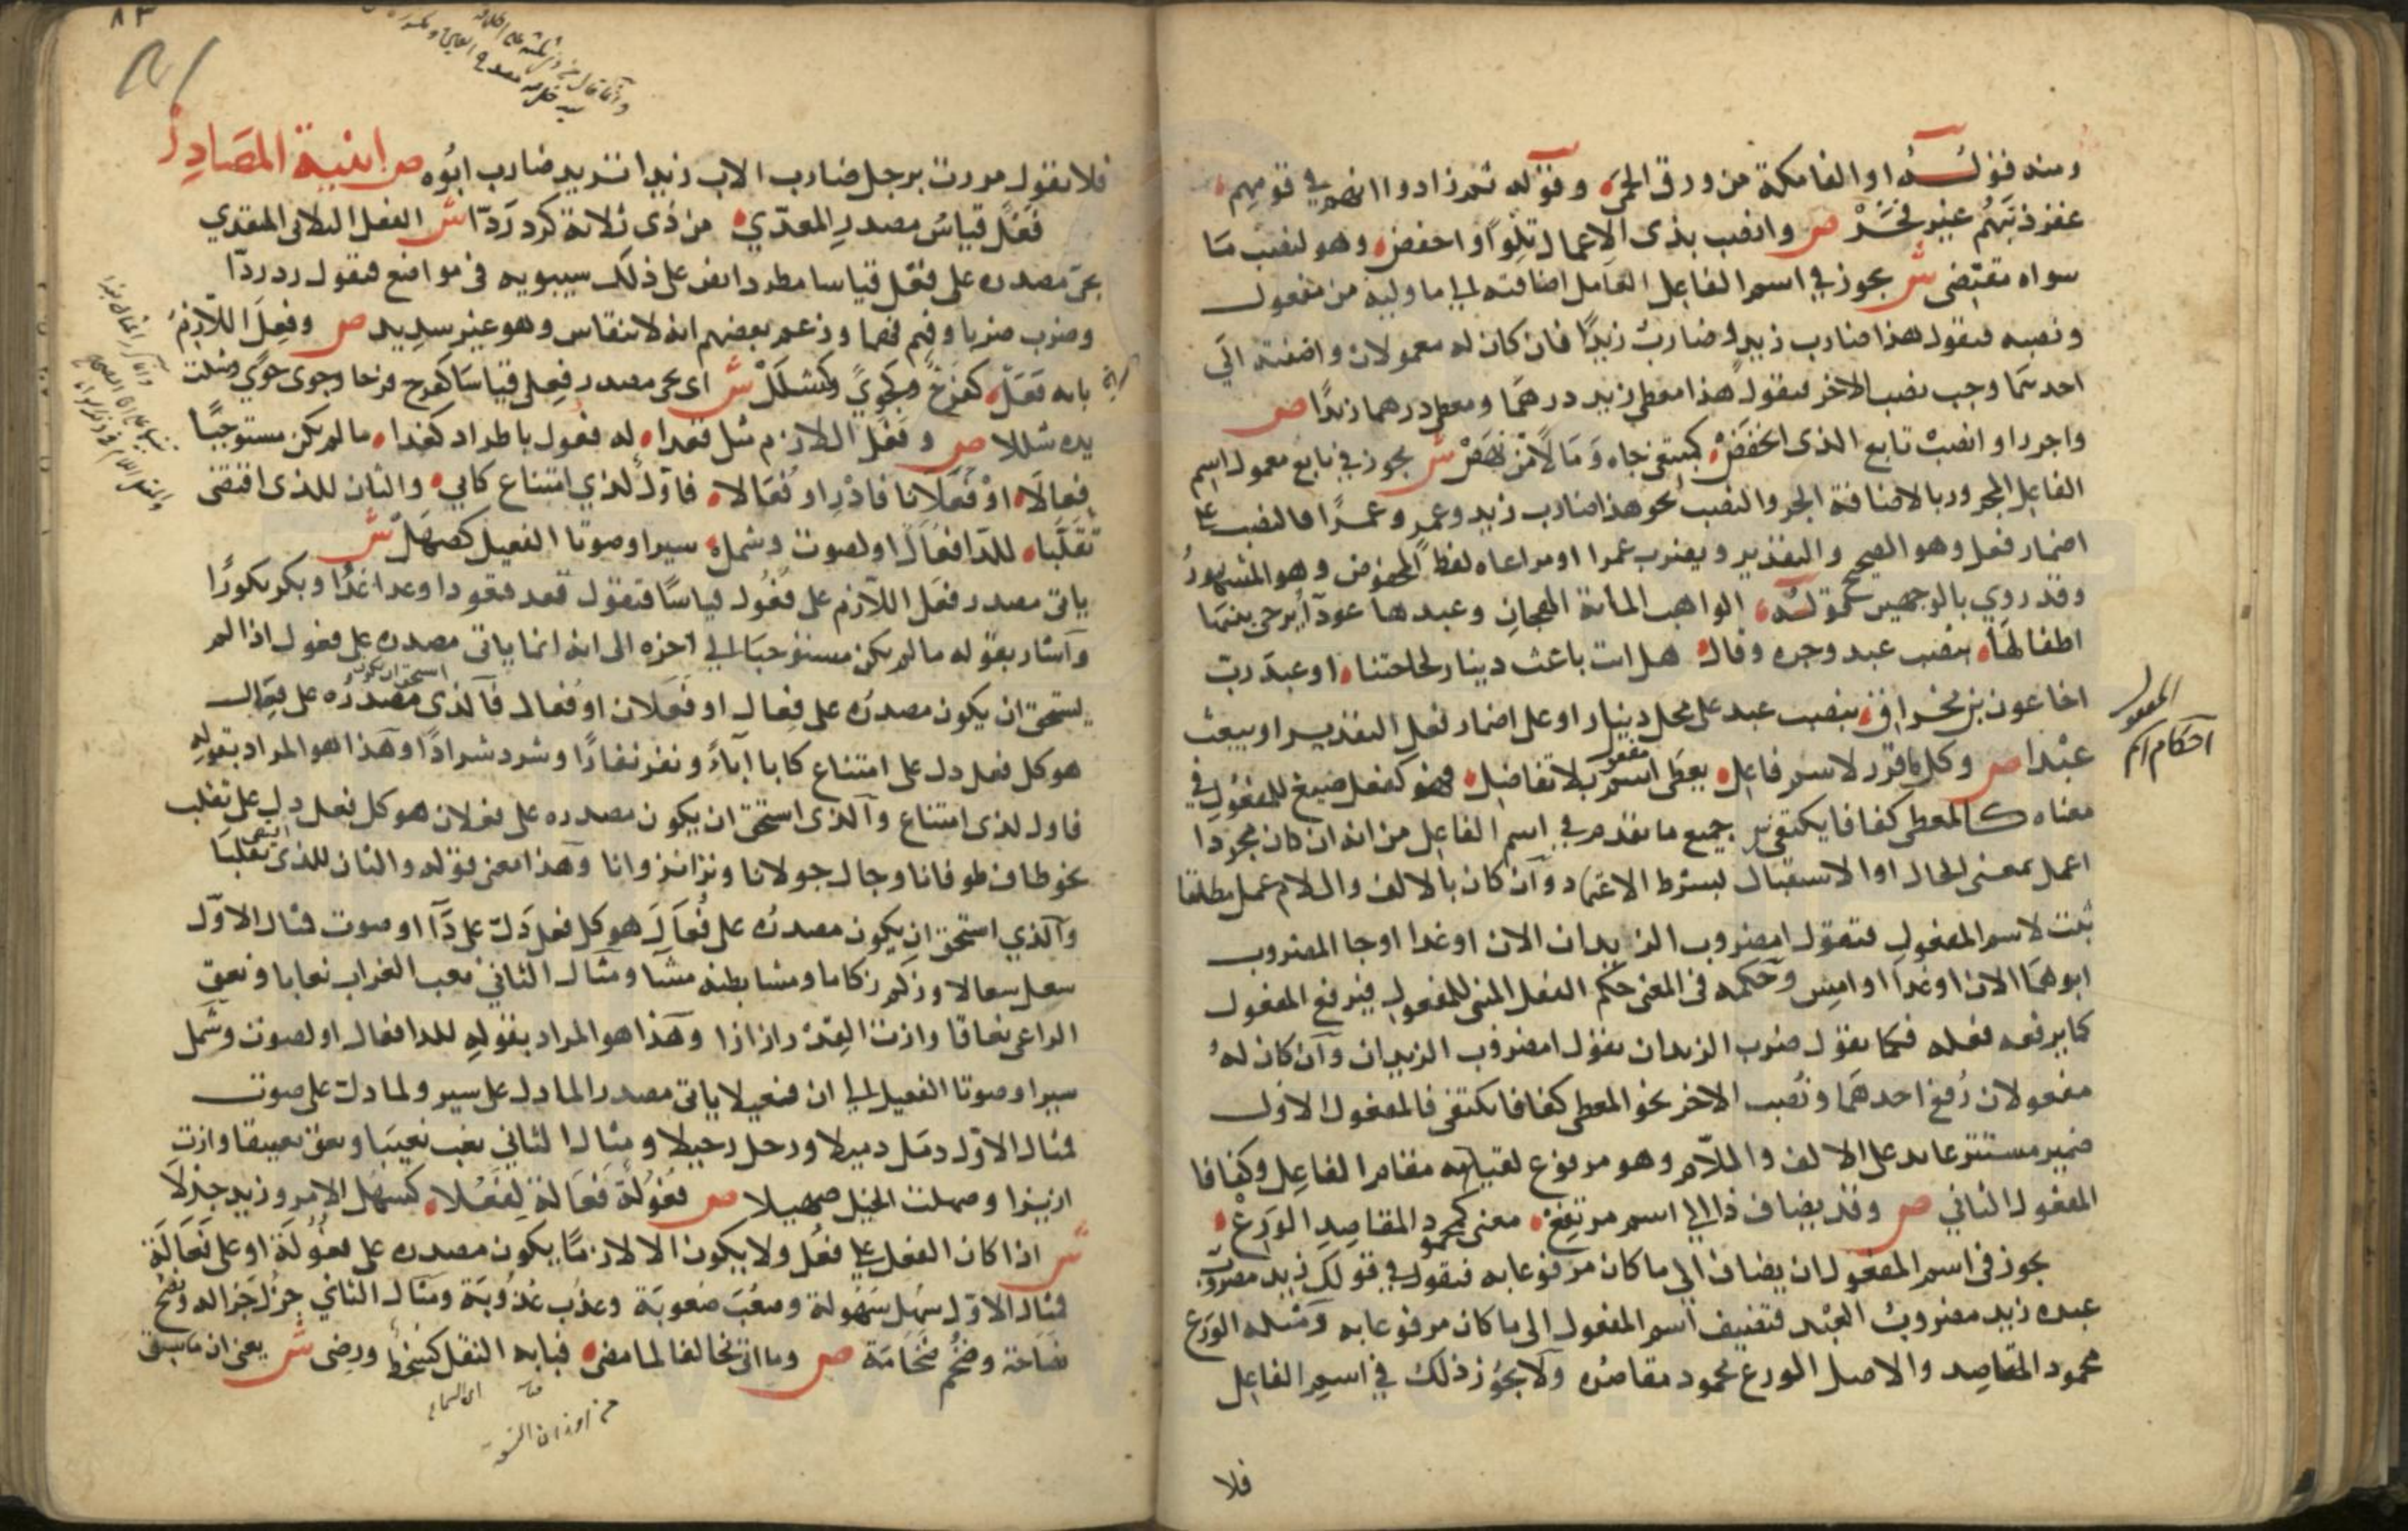 ومنه قوله اوالفا مكة من ورق الحمى وقوله ثم زادوا انهم في قومهم
غفر ذنبهم غير فخر ص وانصب بذي الاعمال تلوا واخفض وهو لنصب ما
سواه مقتضى ش يجوز في اسم الفاعل العامل اضافته الى ما وليه من مفعول
ونصبه فتقول هذا ضارب زيد وضارب زيدا فان كان له معمولان واضفته الى
احدهما وجب نصب الاخر فتقول هذا معطي زيد درهما ومعطي درهم زيدا ص
واجرر او انصب تابع الذي انخفض كمبتغي جاه ومالا من نهض ش يجوز في تابع معمول اسم
الفاعل المجرور بالاضافة الجر والنصب نحو هذا ضارب زيد وعمرو وعمرا فالنصب على
اضمار فعل وهو الصحيح والتقدير ويضرب عمرا او مراعاه لفظ المخفوض وهو المشهور
وقد روي بالوجهين قوله الواهب المائة الهجان وعبدها عوذا يزجي بينها
اطفالها بنصب عبد وجره وقال هل انت باعث دينار لحاجتنا او عبد رب
اخا عون بن مخراق بنصب عبد على محل دينار او على اضمار فعل التقدير او يبعث
عبدا ص وكل ما قرر لاسم فاعل يعطى اسم مفعول بلا تفاضل فهو كفعل صيغ للمفعول في
معناه كالمعطى كفافا يكتفي ش جميع ما تقدم في اسم الفاعل من انه ان كان مجردا
اعمل بمعنى الحال او الاستقبال بشرط الاعتماد وان كان بالالف واللام عمل مطلقا
يثبت لاسم المفعول فتقول امضروب الزيدان الان او غدا او جا المضروب
ابوهما الان او غدا او امس وحكمه في المعنى حكم الفعل المبني للمفعول فيرفع المفعول
كما يرفعه فعله فكما تقول ضرب الزيدان تقول امضروب الزيدان وان كان له
مفعولان رفع احدهما ونصب الاخر نحو المعطى كفافا يكتفي فالمفعول الاول
ضمير مستتر عائد على الالف واللام وهو مرفوع لقيامه مقام الفاعل وكفافا
المفعول الثاني ص وقد يضاف ذا الى اسم مرتفع معنى كمحمود المقاصد الورع
يجوز في اسم المفعول ان يضاف الى ما كان مرفوعا به فتقول في قولك زيد مضروب
عبده زيد مضروب العبد فتضيف اسم المفعول الى ما كان مرفوعا به ومثله الورع
محمود المقاصد والاصل الورع محمود مقاصده ولا يجوز ذلك في اسم الفاعل
فلا
المفعول
احكام اسم
فلا تقول مررت برجل ضارب الاب زيدا تريد ضارب ابوه ص ابنية المصادر
فعل قياس مصدر المعدي من ذي ثلاثة كرد ردا ش الفعل الثلاثي المتعدي
يجي مصدره على فعل قياسا مطردا نص على ذلك سيبويه في مواضع فتقول رد ردا
وضرب ضربا وفهم فهما وزعم بعضهم انه لا ينقاس وهو غير سديد ص وفعل اللازم
بابه فعل كفرح وكجوى وكشلل ش اي يجي مصدر فعل قياسا كفرح فرحا وجوى جوى وشلت
يده شللا ص وفعل اللازم مثل قعدا له فعول باطراد كغدا ما لم يكن مستوجبا
فعالا او فعلانا فادر او فعالا فاول لذي امتناع كابى والثان للذي اقتضى
تقلبا للدا فعال او لصوت وشمل سيرا وصوتا الفعيل كصهل ش
ياتي مصدر فعل اللازم على فعول قياسا فتقول قعد قعودا وغدا غدوا وبكر بكورا
واشار بقوله ما لم يكن مستوجبا الى اخره الى انه انما ياتي مصدره على فعول اذا لم
يستحق ان يكون مصدره على فعال او فعلان او فعال فالذي استحق ان يكون مصدره على فعال
هو كل فعل دل على امتناع كابا اباء ونفر نفارا وشرد شرادا وهذا هو المراد بقوله
فاول لذي امتناع والذي استحق ان يكون مصدره على فعلان هو كل فعل دل على تقلب
نحو طاف طوفانا وجال جولانا ونزا نزوانا وهذا معنى قوله والثان للذي اقتضى تقلبا
والذي استحق ان يكون مصدره على فعال هو كل فعل دل على دا او صوت فمثال الاول
سعل سعالا وزكم زكاما ومشا بطنه مشا ومثال الثاني نعب الغراب نعابا ونعق
الراعي نعاقا وازت القدر ازازا وهذا هو المراد بقوله للدا فعال او لصوت وشمل
سيرا وصوتا الفعيل الى ان فعيلا ياتي مصدرا لما دل على سير ولما دل على صوت
فمثال الاول ذمل ذميلا ورحل رحيلا ومثال الثاني نعب نعيبا ونعق نعيقا وازت
ازيزا وصهلت الخيل صهيلا ص فعولة فعالة لفعلا كسهل الامر وزيد جزلا
ش اذا كان الفعل على فعل ولا يكون الا لازما يكون مصدره على فعولة او على فعالة
فمثال الاول سهل سهولة وصعب صعوبة وعذب عذوبة ومثال الثاني جزل جزالة وفصح
فصاحة وضخم ضخامة ص وما اتى مخالفا لما مضى فبابه النقل كسخط ورضى ش يعني ان ما سبق